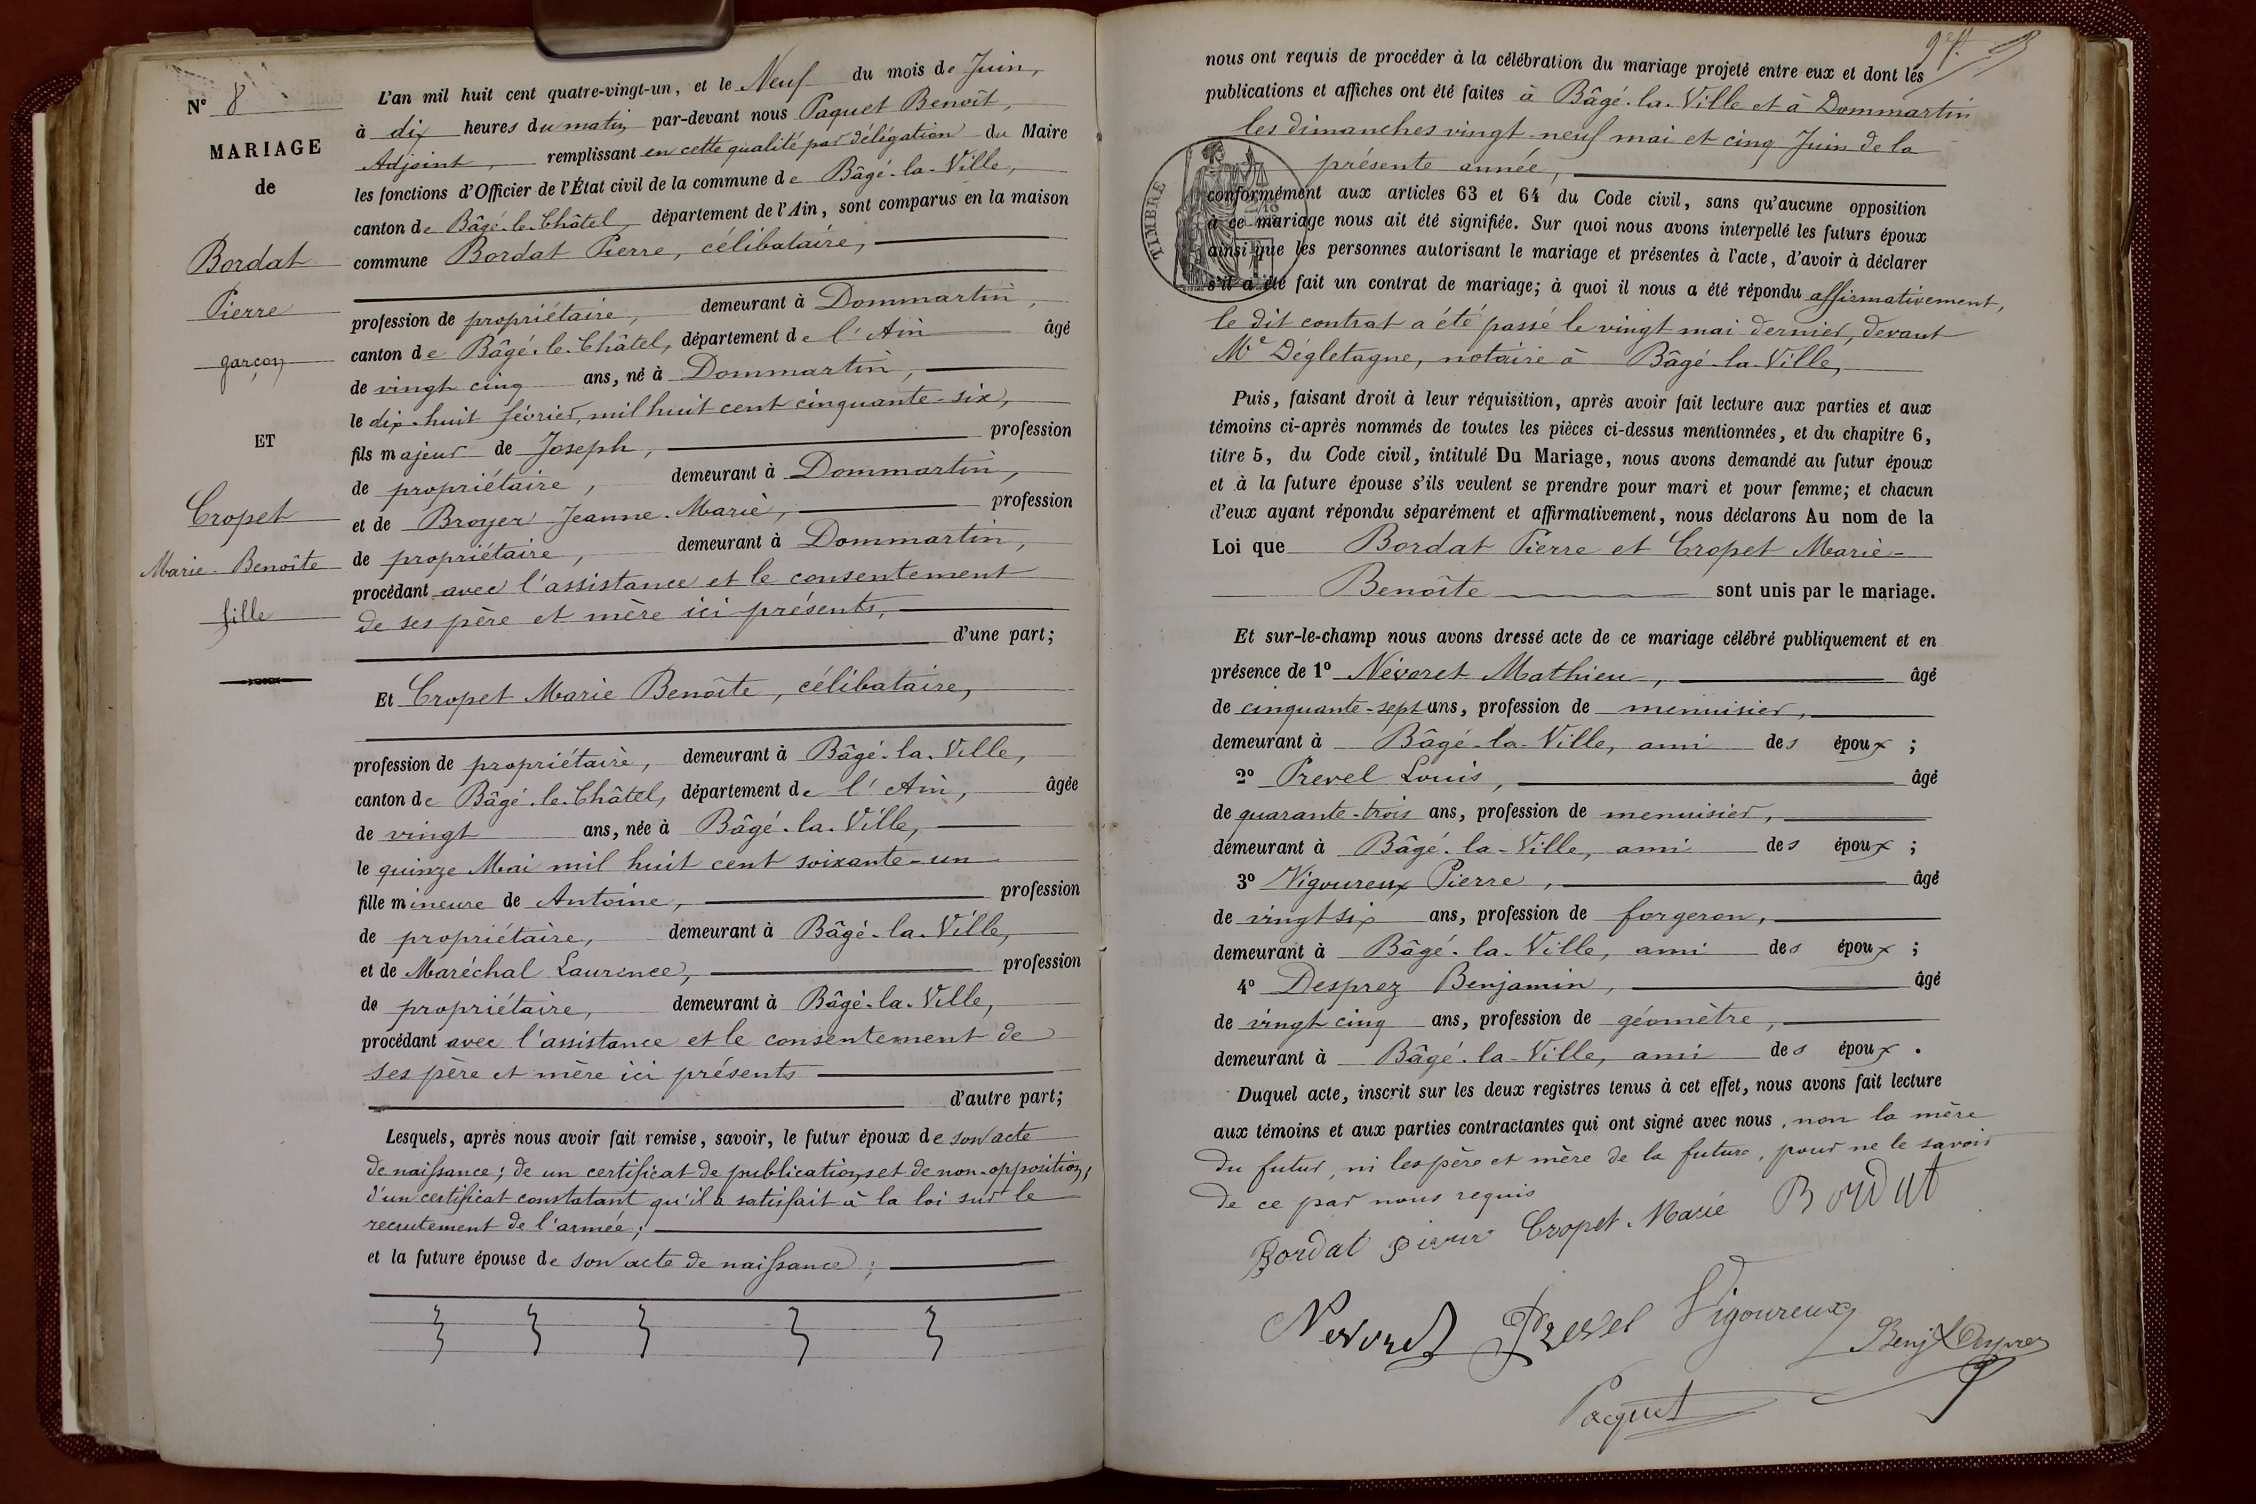 N° 8
MARIAGE
de
Bordat
Pierre
garçon
ET
Cropet
Marie-Benoîte
fille
L'an mil huit cent quatre-vingt-un, et le Neuf du mois de Juin,
à dix heures du matin par-devant nous Paquet Benoît,
Adjoint, remplissant en cette qualité par délégation du Maire
les fonctions d'Officier de l'État civil de la commune de Bâgé-la-Ville,
canton de Bâgé-le-Châtel, département de l'Ain, sont comparus en la maison
commune Bordat Pierre, célibataire,
profession de propriétaire, demeurant à Dommartin,
canton de Bâgé-le-Châtel, département de l'Ain âgé
de vingt cinq ans, né à Dommartin,
le dix-huit février, mil huit cent cinquante-six,
fils majeur de Joseph, profession
de propriétaire, demeurant à Dommartin,
et de Broyer Jeanne-Marie, profession
de propriétaire, demeurant à Dommartin,
procédant avec l'assistance et le consentement
de ses père et mère ici présents,
d'une part;
Et Cropet Marie Benoîte, célibataire,
profession de propriétaire, demeurant à Bâgé-la-Ville,
canton de Bâgé-le-Châtel, département de l'Ain, âgée
de vingt ans, née à Bâgé-la-Ville,
le quinze Mai mil huit cent soixante-un
fille mineure de Antoine, profession
de propriétaire, demeurant à Bâgé-la-Ville,
et de Maréchal Laurence, profession
de propriétaire, demeurant à Bâgé-la-Ville,
procédant avec l'assistance et le consentement de
ses père et mère ici présents
d'autre part;
Lesquels, après nous avoir fait remise, savoir, le futur époux de son acte
de naissance; de un certificat de publications et de non-opposition;
d'un certificat constatant qu'il a satisfait à la loi sur le
recrutement de l'armée;
et la future épouse de son acte de naissance;
nous ont requis de procéder à la célébration du mariage projeté entre eux et dont les
publications et affiches ont été faites à Bâgé-la-Ville et à Dommartin
les dimanches vingt-neuf mai et cinq Juin de la
présente année,
TIMBRE
conformément aux articles 63 et 64 du Code civil, sans qu'aucune opposition
à ce mariage nous ait été signifiée. Sur quoi nous avons interpellé les futurs époux
ainsi que les personnes autorisant le mariage et présentes à l'acte, d'avoir à déclarer
s'il a été fait un contrat de mariage; à quoi il nous a été répondu affirmativement,
le dit contrat a été passé le vingt mai dernier, devant
Me Dégletagne, notaire à Bâgé-la-Ville,
Puis, faisant droit à leur réquisition, après avoir fait lecture aux parties et aux
témoins ci-après nommés de toutes les pièces ci-dessus mentionnées, et du chapitre 6,
titre 5, du Code civil, intitulé Du Mariage, nous avons demandé au futur époux
et à la future épouse s'ils veulent se prendre pour mari et pour femme; et chacun
d'eux ayant répondu séparément et affirmativement, nous déclarons Au nom de la
Loi que Bordat Pierre et Cropet Marie-
Benoîte sont unis par le mariage.
Et sur-le-champ nous avons dressé acte de ce mariage célébré publiquement et en
présence de 1° Névoret Mathieu, âgé
de cinquante-sept ans, profession de menuisier,
demeurant à Bâgé-la-Ville, ami des époux;
2° Prevel Louis, âgé
de quarante-trois ans, profession de menuisier,
demeurant à Bâgé-la-Ville, ami des époux;
3° Vigoureux Pierre, âgé
de vingt six ans, profession de forgeron,
demeurant à Bâgé-la-Ville, ami des époux;
4° Desprez Benjamin, âgé
de vingt cinq ans, profession de géomètre,
demeurant à Bâgé-la-Ville, ami des époux.
Duquel acte, inscrit sur les deux registres tenus à cet effet, nous avons fait lecture
aux témoins et aux parties contractantes qui ont signé avec nous, non la mère
du futur, ni les père et mère de la future, pour ne le savoir
de ce par nous requis
Bordat pierre Cropet Marie Bordat
Nevoret Prevel Vigoureux Benj Desprez
Paquet